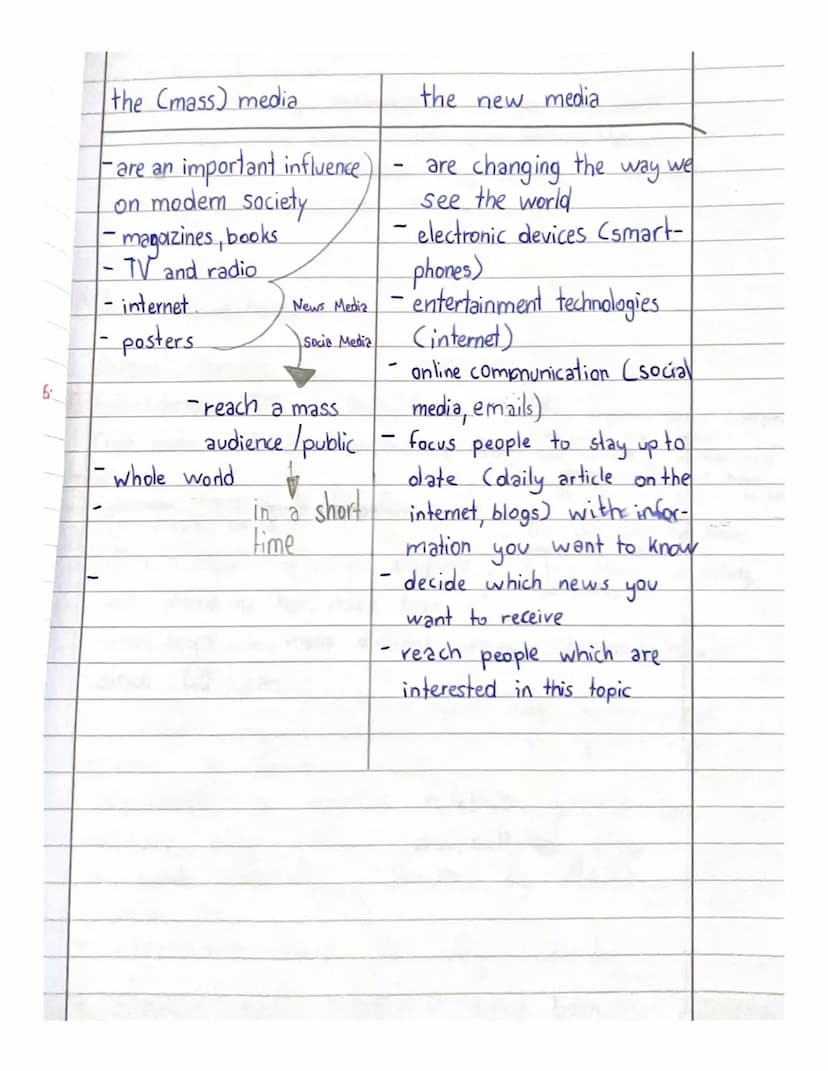 the (mass) media
- are an important influence
on modern society
- magazines, books
- TV and radio
- internet.
- posters
News Media
Socia Media
- reach a mass
audience / public
- whole world
-
in a short
time
-
the new media
- are changing the way we
see the world
- electronic devices (smart-
phones)
- entertainment technologies
(internet)
- online communication (social
media, emails)
- focus people to stay up to
date (daily article on the
internet, blogs) with infor-
mation you want to know
- decide which news you
want to receive
- reach people which are
interested in this topic